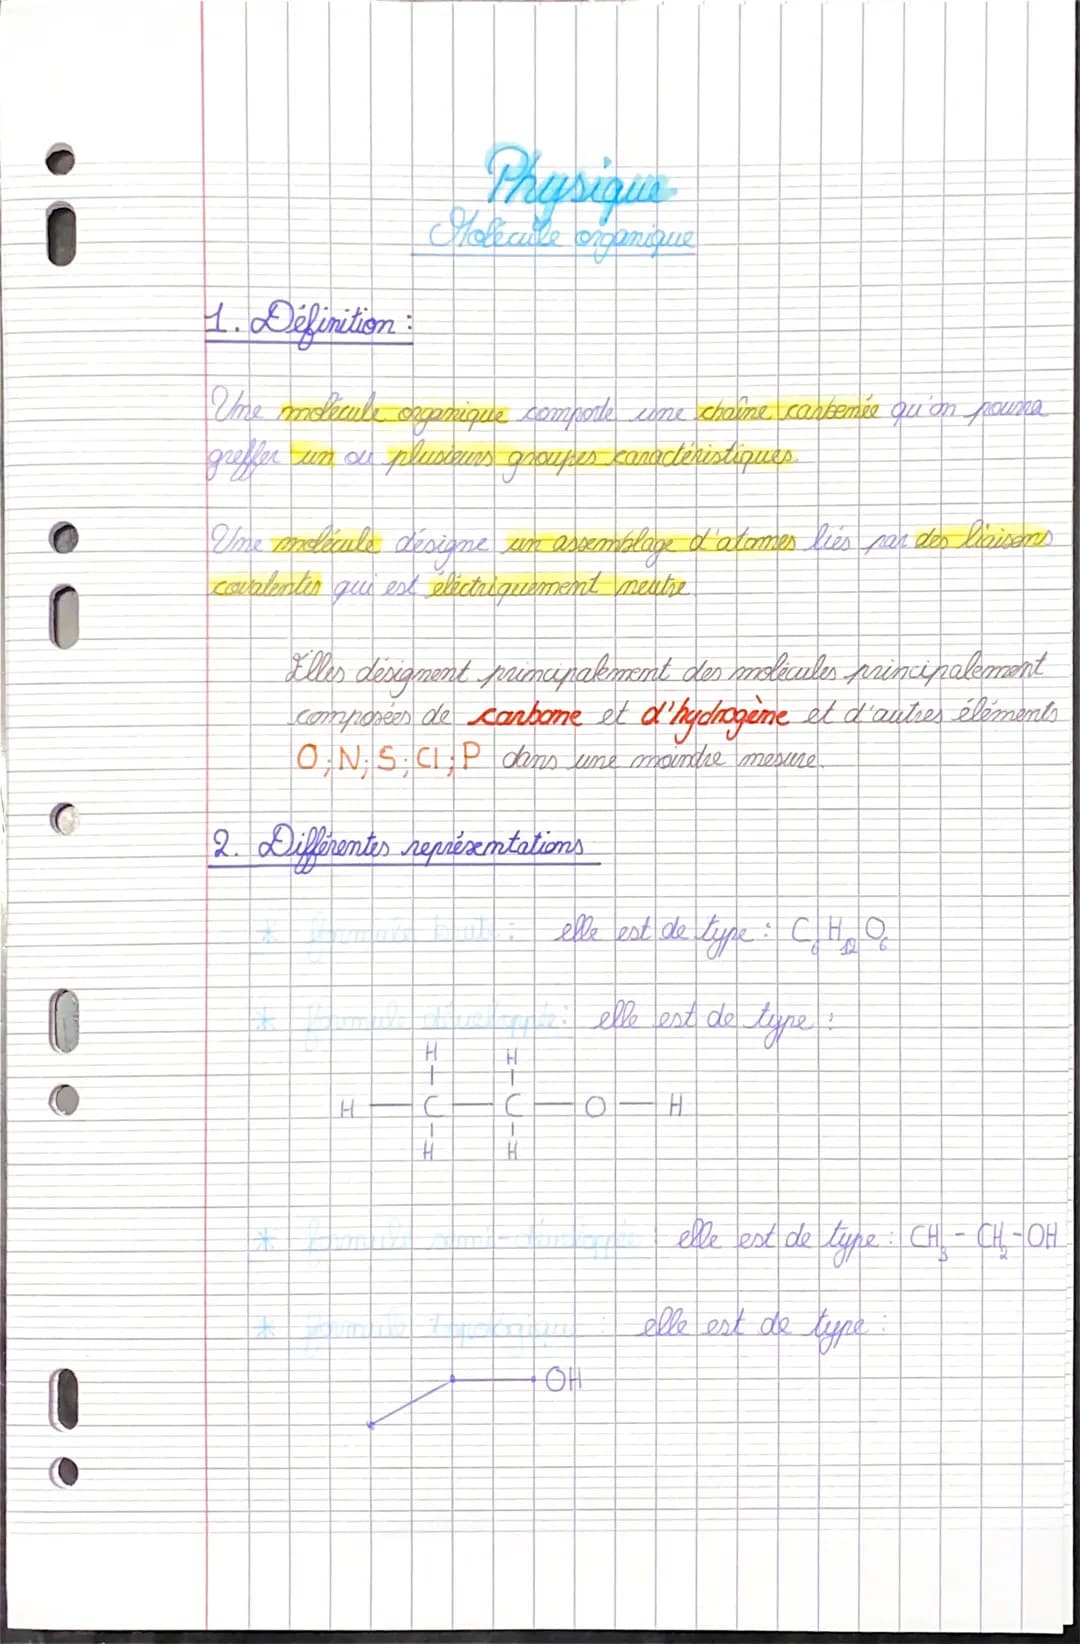 Physique
Molécule organique
1. Définition :
Une molécule organique comporte une chaîne carbonée qu'on pourra
greffer un ou plusieurs groupes caractéristiques.
Une molécule désigne un assemblage d'atomes liés par des liaisons
covalentes qui est éléctriquement neutre
Elles désignent principalement des molécules principalement
composées de carbone et d'hydrogène et d'autres éléments
O ; N ; S ; Cl ; P dans une moindre mesure.
2. Différentes représentations
* formule brute : elle est de type : C6 H12 O6
* formule développée : elle est de type :
H H
H — C — C — O — H
H H
* formule semi-développée : elle est de type : CH3 - CH2 - OH
* formule topologique : elle est de type :
OH